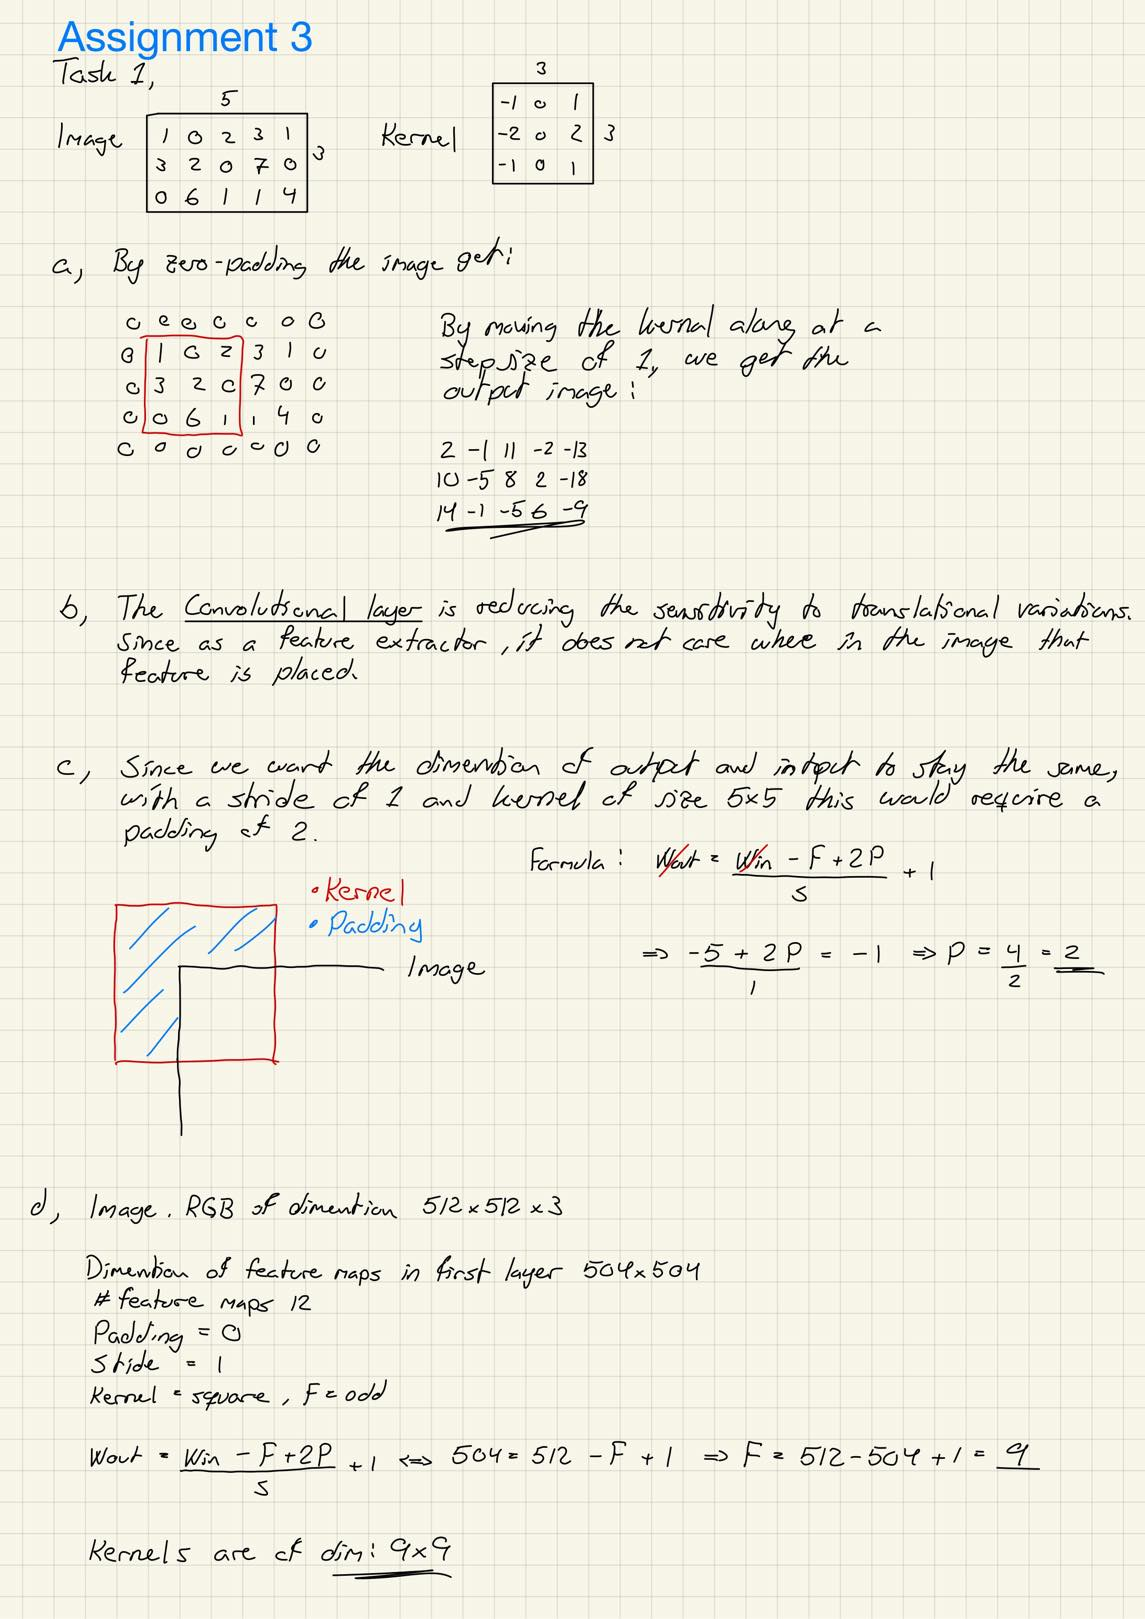 Assignment 3
Task 1,
5
3
Image
1 0 2 3 1
3 2 0 7 0
0 6 1 1 4
3
Kernel
-1 0 1
-2 0 2
-1 0 1
3
a, By zero-padding the image get:
0 0 0 0 0 0 0
0 1 0 2 3 1 0
0 3 2 0 7 0 0
0 0 6 1 1 4 0
0 0 0 0 0 0 0
By moving the kernal along at a
step size of 1, we get the
output image:
2 -1 11 -2 -13
10 -5 8 2 -18
14 -1 -5 6 -9
b, The Convolutional layer is reducing the sensitivity to translational variations.
Since as a feature extractor, it does not care where in the image that
feature is placed.
c, Since we want the dimention of output and intput to stay the same,
with a stride of 1 and kernel of size 5x5 this would require a
padding of 2.
Formula: Wout = Win - F + 2P / S + 1
• Kernel
• Padding
Image
⇒ -5 + 2P / 1 = -1 ⇒ P = 4/2 = 2
d, Image. RGB of dimention 512 x 512 x 3
Dimention of feature maps in first layer 504x504
# feature maps 12
Padding = 0
Stide = 1
Kernel = square, F = odd
Wout = Win - F + 2P / S + 1 ⇔ 504 = 512 - F + 1 ⇒ F = 512 - 504 + 1 = 9
Kernels are of dim: 9x9